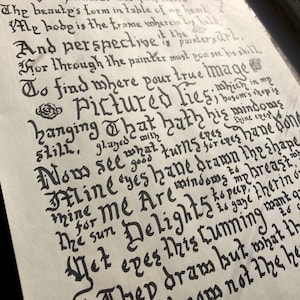 Thy beauty's form in table of my heart
My body is the frame wherein 'tis held
And perspective it is the painter's art
For through the painter must you see his skill,
To find where your true Image
Pictured lies; which in my bosom's shop is
hanging That hath his windows
still, glazed with thine eyes
Now see what good turns eyes for eyes have done
Mine eyes have drawn thy shape
thine for me Are windows to my breast
the sun Delights to peep, to gaze therein on
Yet eyes this Cunning want
They draw but what
know not the he